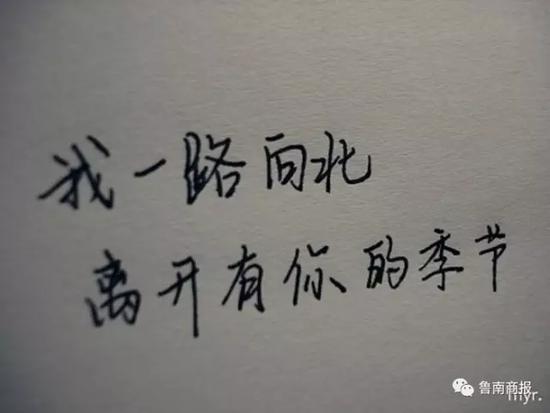 我一路向北
离开有你的季节
鲁南商报
myr.